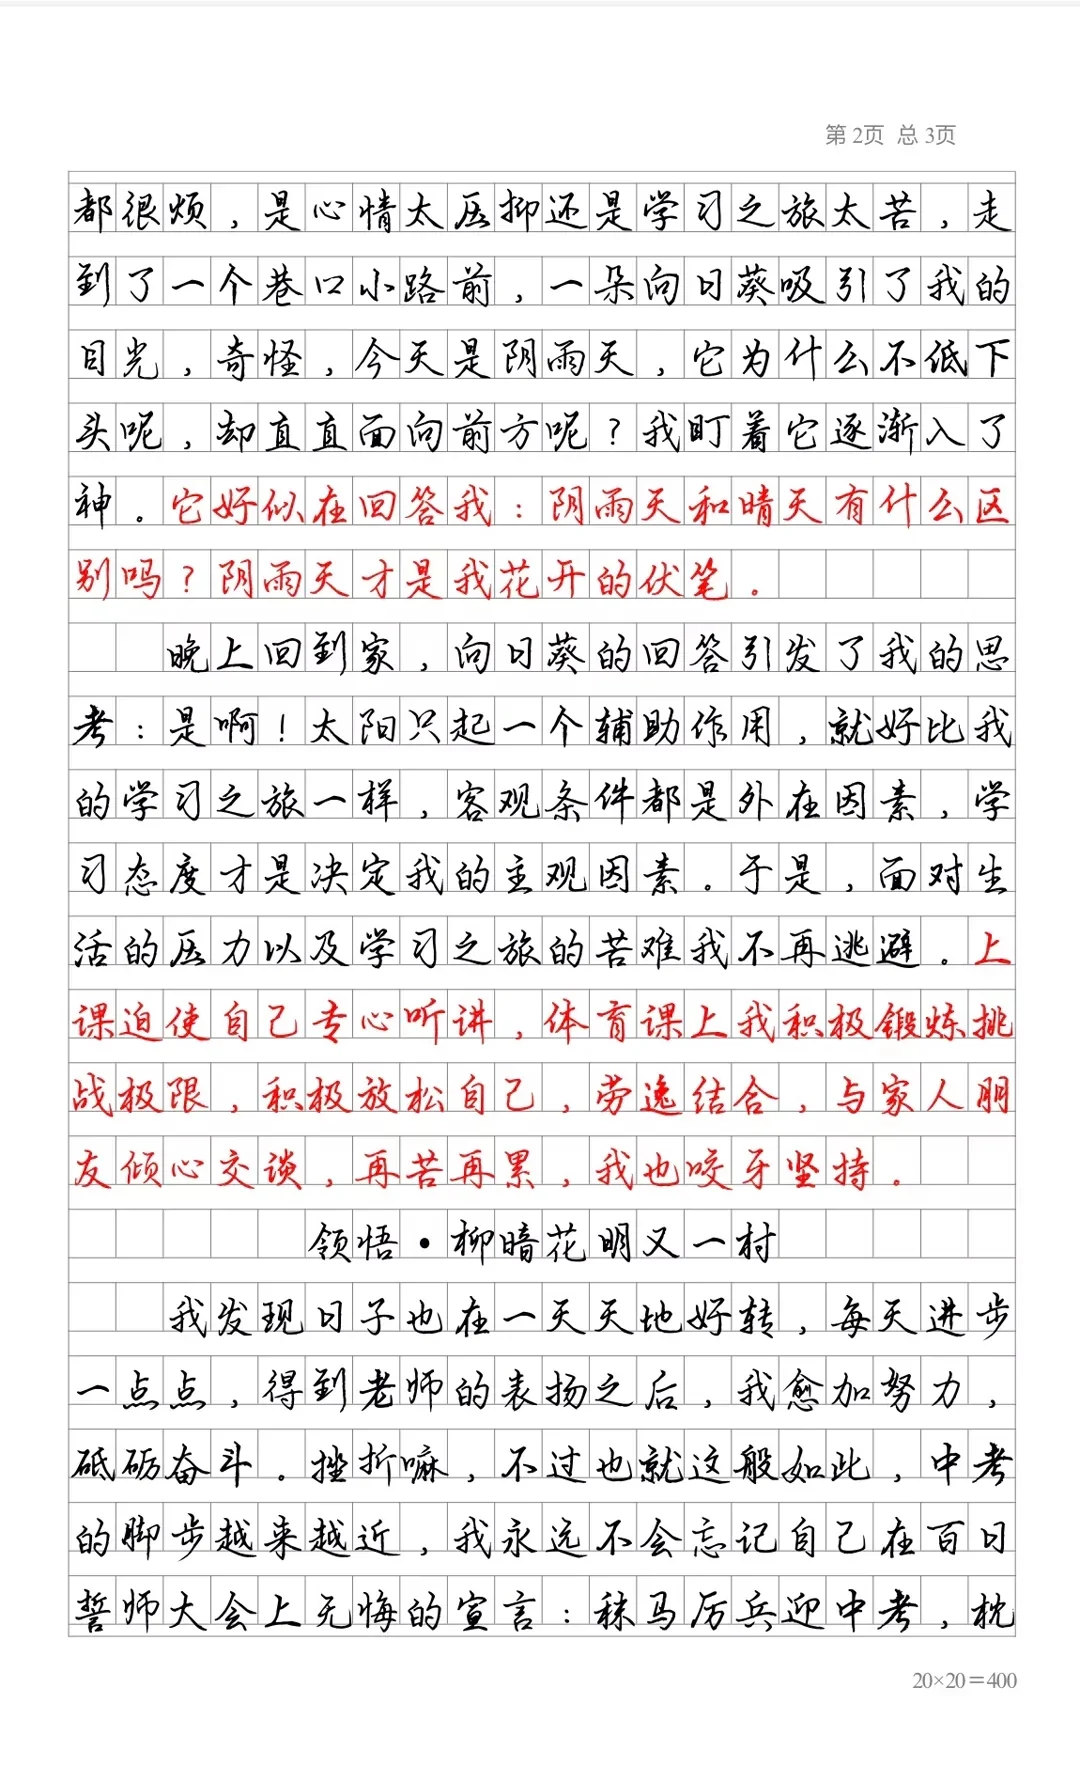 第 2页 总 3页
都很烦，是心情太压抑还是学习之旅太苦，走
到了一个巷口小路前，一朵向日葵吸引了我的
目光，奇怪，今天是阴雨天，它为什么不低下
头呢，却直直面向前方呢？我盯着它逐渐入了
神。它好似在回答我：阴雨天和晴天有什么区
别吗？阴雨天才是我花开的伏笔。
晚上回到家，向日葵的回答引发了我的思
考：是啊！太阳只起一个辅助作用，就好比我
的学习之旅一样，客观条件都是外在因素，学
习态度才是决定我的主观因素。于是，面对生
活的压力以及学习之旅的苦难我不再逃避。上
课迫使自己专心听讲，体育课上我积极锻炼挑
战极限，积极放松自己，劳逸结合，与家人朋
友倾心交谈，再苦再累，我也咬牙坚持。
领悟·柳暗花明又一村
我发现日子也在一天天地好转，每天进步
一点点，得到老师的表扬之后，我愈加努力，
砥砺奋斗。挫折嘛，不过也就这般如此，中考
的脚步越来越近，我永远不会忘记自己在百日
誓师大会上无悔的宣言：秣马厉兵迎中考，枕
20×20＝400